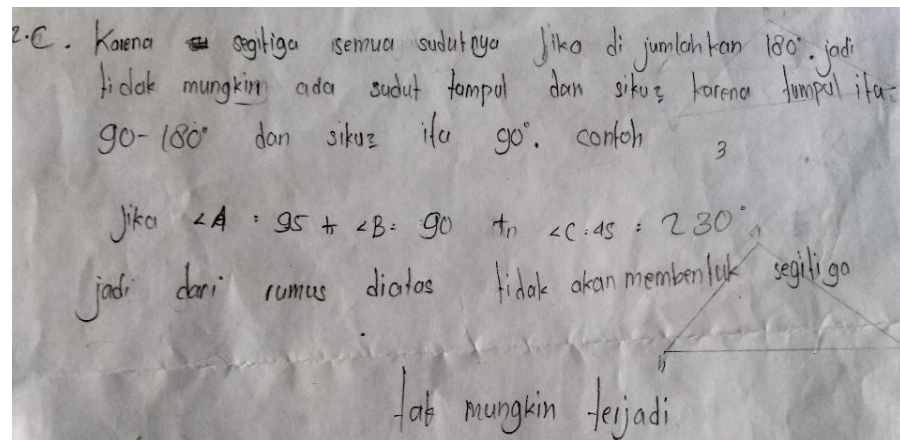 2.C. Karena segitiga semua sudutnya Jika di jumlahkan 180°. jadi
tidak mungkin ada sudut tumpul dan siku2 karena tumpul itu
90-180° dan siku2 itu 90°. contoh
3
Jika ∠A = 95 + ∠B = 90 + ∠C = 45 = 230°
jadi dari rumus diatas tidak akan membentuk segitiga
tak mungkin terjadi